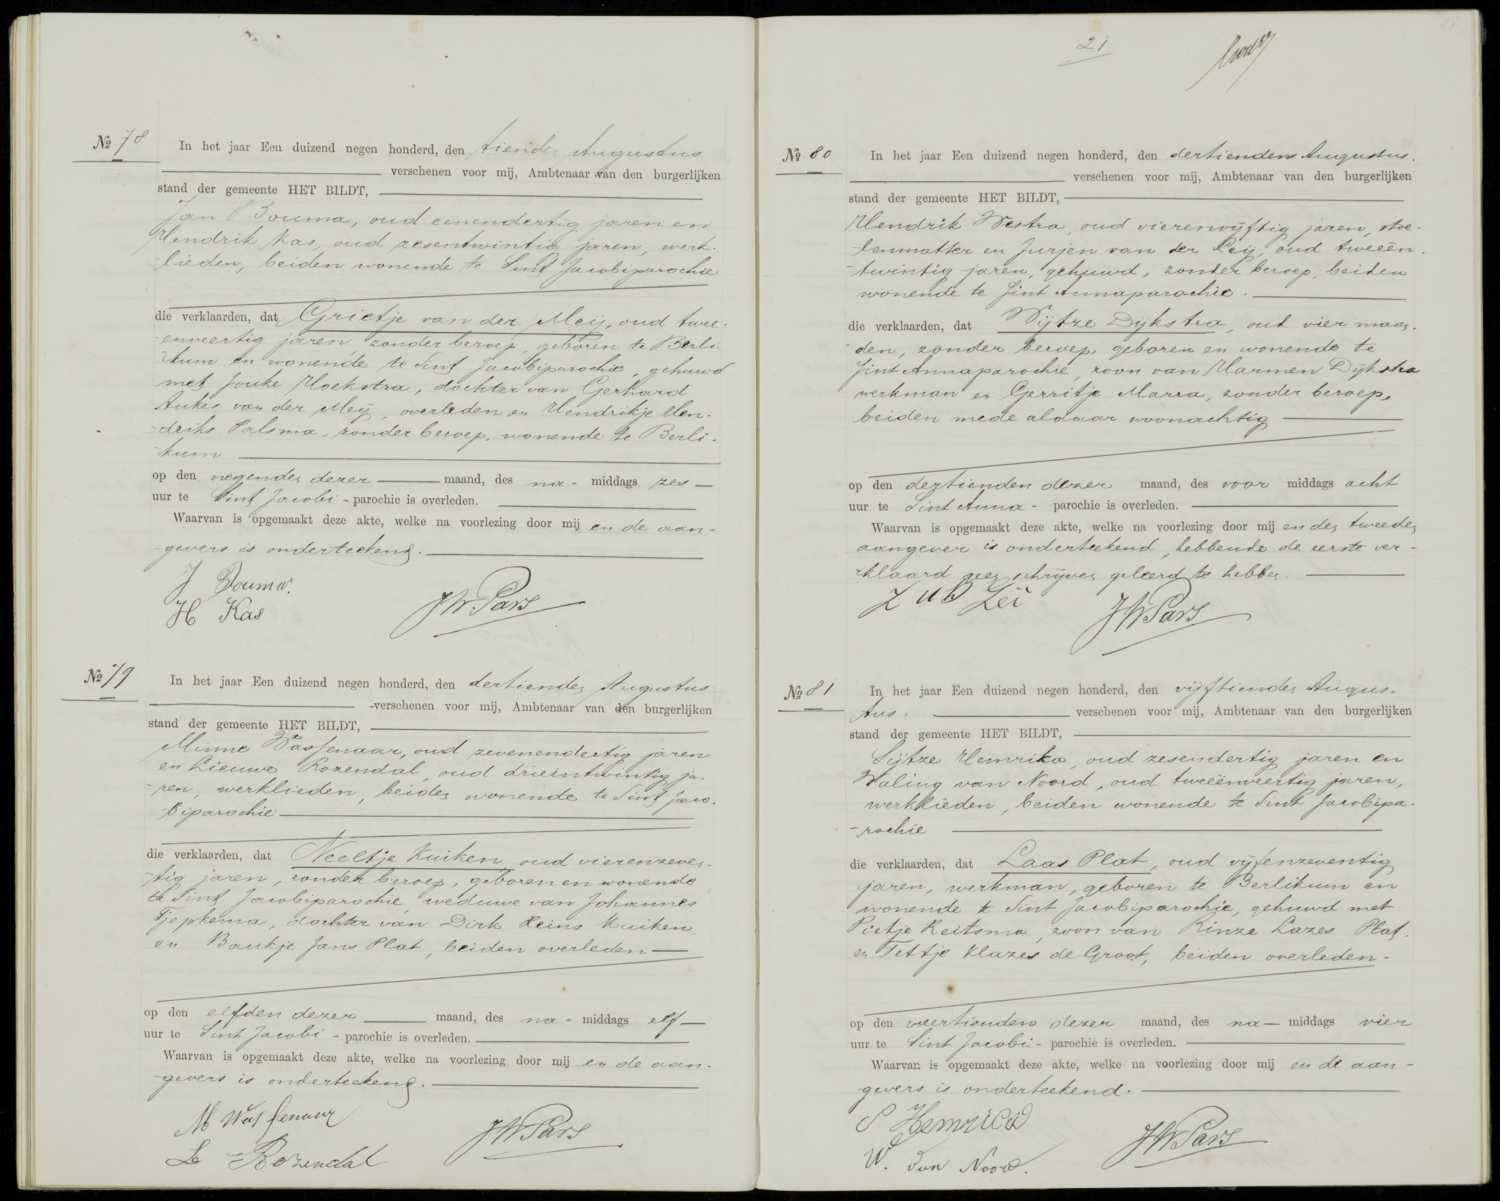 № 78
In het jaar Een duizend negen honderd, den tienden Augustus
verschenen voor mij, Ambtenaar van den burgerlijken
stand der gemeente HET BILDT,
Jan Bouma, oud eenendertig jaren en
Hendrik Kas, oud zesentwintig jaren, werk-
lieden, beiden wonende te Sint Jacobiparochie
die verklaarden, dat Grietje van der Meij, oud twee-
enveertig jaren zonder beroep, geboren te Berli-
kum en wonende te Sint Jacobiparochie, gehuwd
met Jouke Hoekstra, dochter van Gerhard
Aukes van der Meij, overleden en Hendrikje Hen-
driks Palsma, zonder beroep, wonende te Berli-
kum
op den negenden dezer maand, des na- middags zes
uur te Sint Jacobi - parochie is overleden.
Waarvan is opgemaakt deze akte, welke na voorlezing door mij en de aan-
gevers is onderteekend.
J Bouma.
H Kas
JW Pars
№ 79
In het jaar Een duizend negen honderd, den dertienden Augustus
verschenen voor mij, Ambtenaar van den burgerlijken
stand der gemeente HET BILDT,
Minne Wassenaar, oud zevenendertig jaren
en Lieuwe Rozendal, oud drieëntwintig ja-
ren, werklieden, beiden wonende te Sint Jaco-
biparochie
die verklaarden, dat Neeltje Kuiken, oud vierenzeven-
tig jaren, zonder beroep, geboren en wonende
te Sint Jacobiparochie weduwe van Johannes
Tjepkema, dochter van Dirk Heins Kuiken
en Baukje Jans Plat, beiden overleden
op den elfden dezer maand, des na - middags elf
uur te Sint Jacobi - parochie is overleden.
Waarvan is opgemaakt deze akte, welke na voorlezing door mij en de aan-
gevers is onderteekend.
M Wassenaar
L Rozendal
JW Pars
21
№ 80
In het jaar Een duizend negen honderd, den dertienden Augustus.
verschenen voor mij, Ambtenaar van den burgerlijken
stand der gemeente HET BILDT,
Hendrik Westra, oud vierenvijftig jaren, stoe-
lenmatter en Jurjen van der Leij, oud tweeën-
twintig jaren, gehuwd, zonder beroep, beiden
wonende te Sint Annaparochie.
die verklaarden, dat Wijtze Dijkstra, oud vier maan-
den, zonder beroep, geboren en wonende te
Sint Annaparochie, zoon van Harmen Dijkstra
werkman en Gerritje Marra, zonder beroep,
beiden mede aldaar woonachtig
op den dertienden dezer maand, des voor middags acht
uur te Sint Anna - parochie is overleden.
Waarvan is opgemaakt deze akte, welke na voorlezing door mij en den tweeden
aangever is onderteekend, hebbende de eerste ver-
klaard geen schrijven geleerd te hebben.
JW Pars
№ 81
In het jaar Een duizend negen honderd, den vijftienden Augus-
tus. verschenen voor mij, Ambtenaar van den burgerlijken
stand der gemeente HET BILDT,
Sijtze Hemrika, oud zesendertig jaren en
Waling van Noord, oud tweeënveertig jaren,
werklieden, beiden wonende te Sint Jacobipa-
rochie
die verklaarden, dat Laas Plat, oud vijfenzeventig
jaren, werkman, geboren te Berlikum en
wonende te Sint Jacobiparochie, gehuwd met
Pietje Reitsma, zoon van Rinze Lazes Plat
en Tettje Klazes de Groot, beiden overleden
op den veertienden dezer maand, des na - middags vier
uur te Sint Jacobi - parochie is overleden.
Waarvan is opgemaakt deze akte, welke na voorlezing door mij en de aan-
gevers is onderteekend.
S Hemrica
W. van Noord.
JW Pars